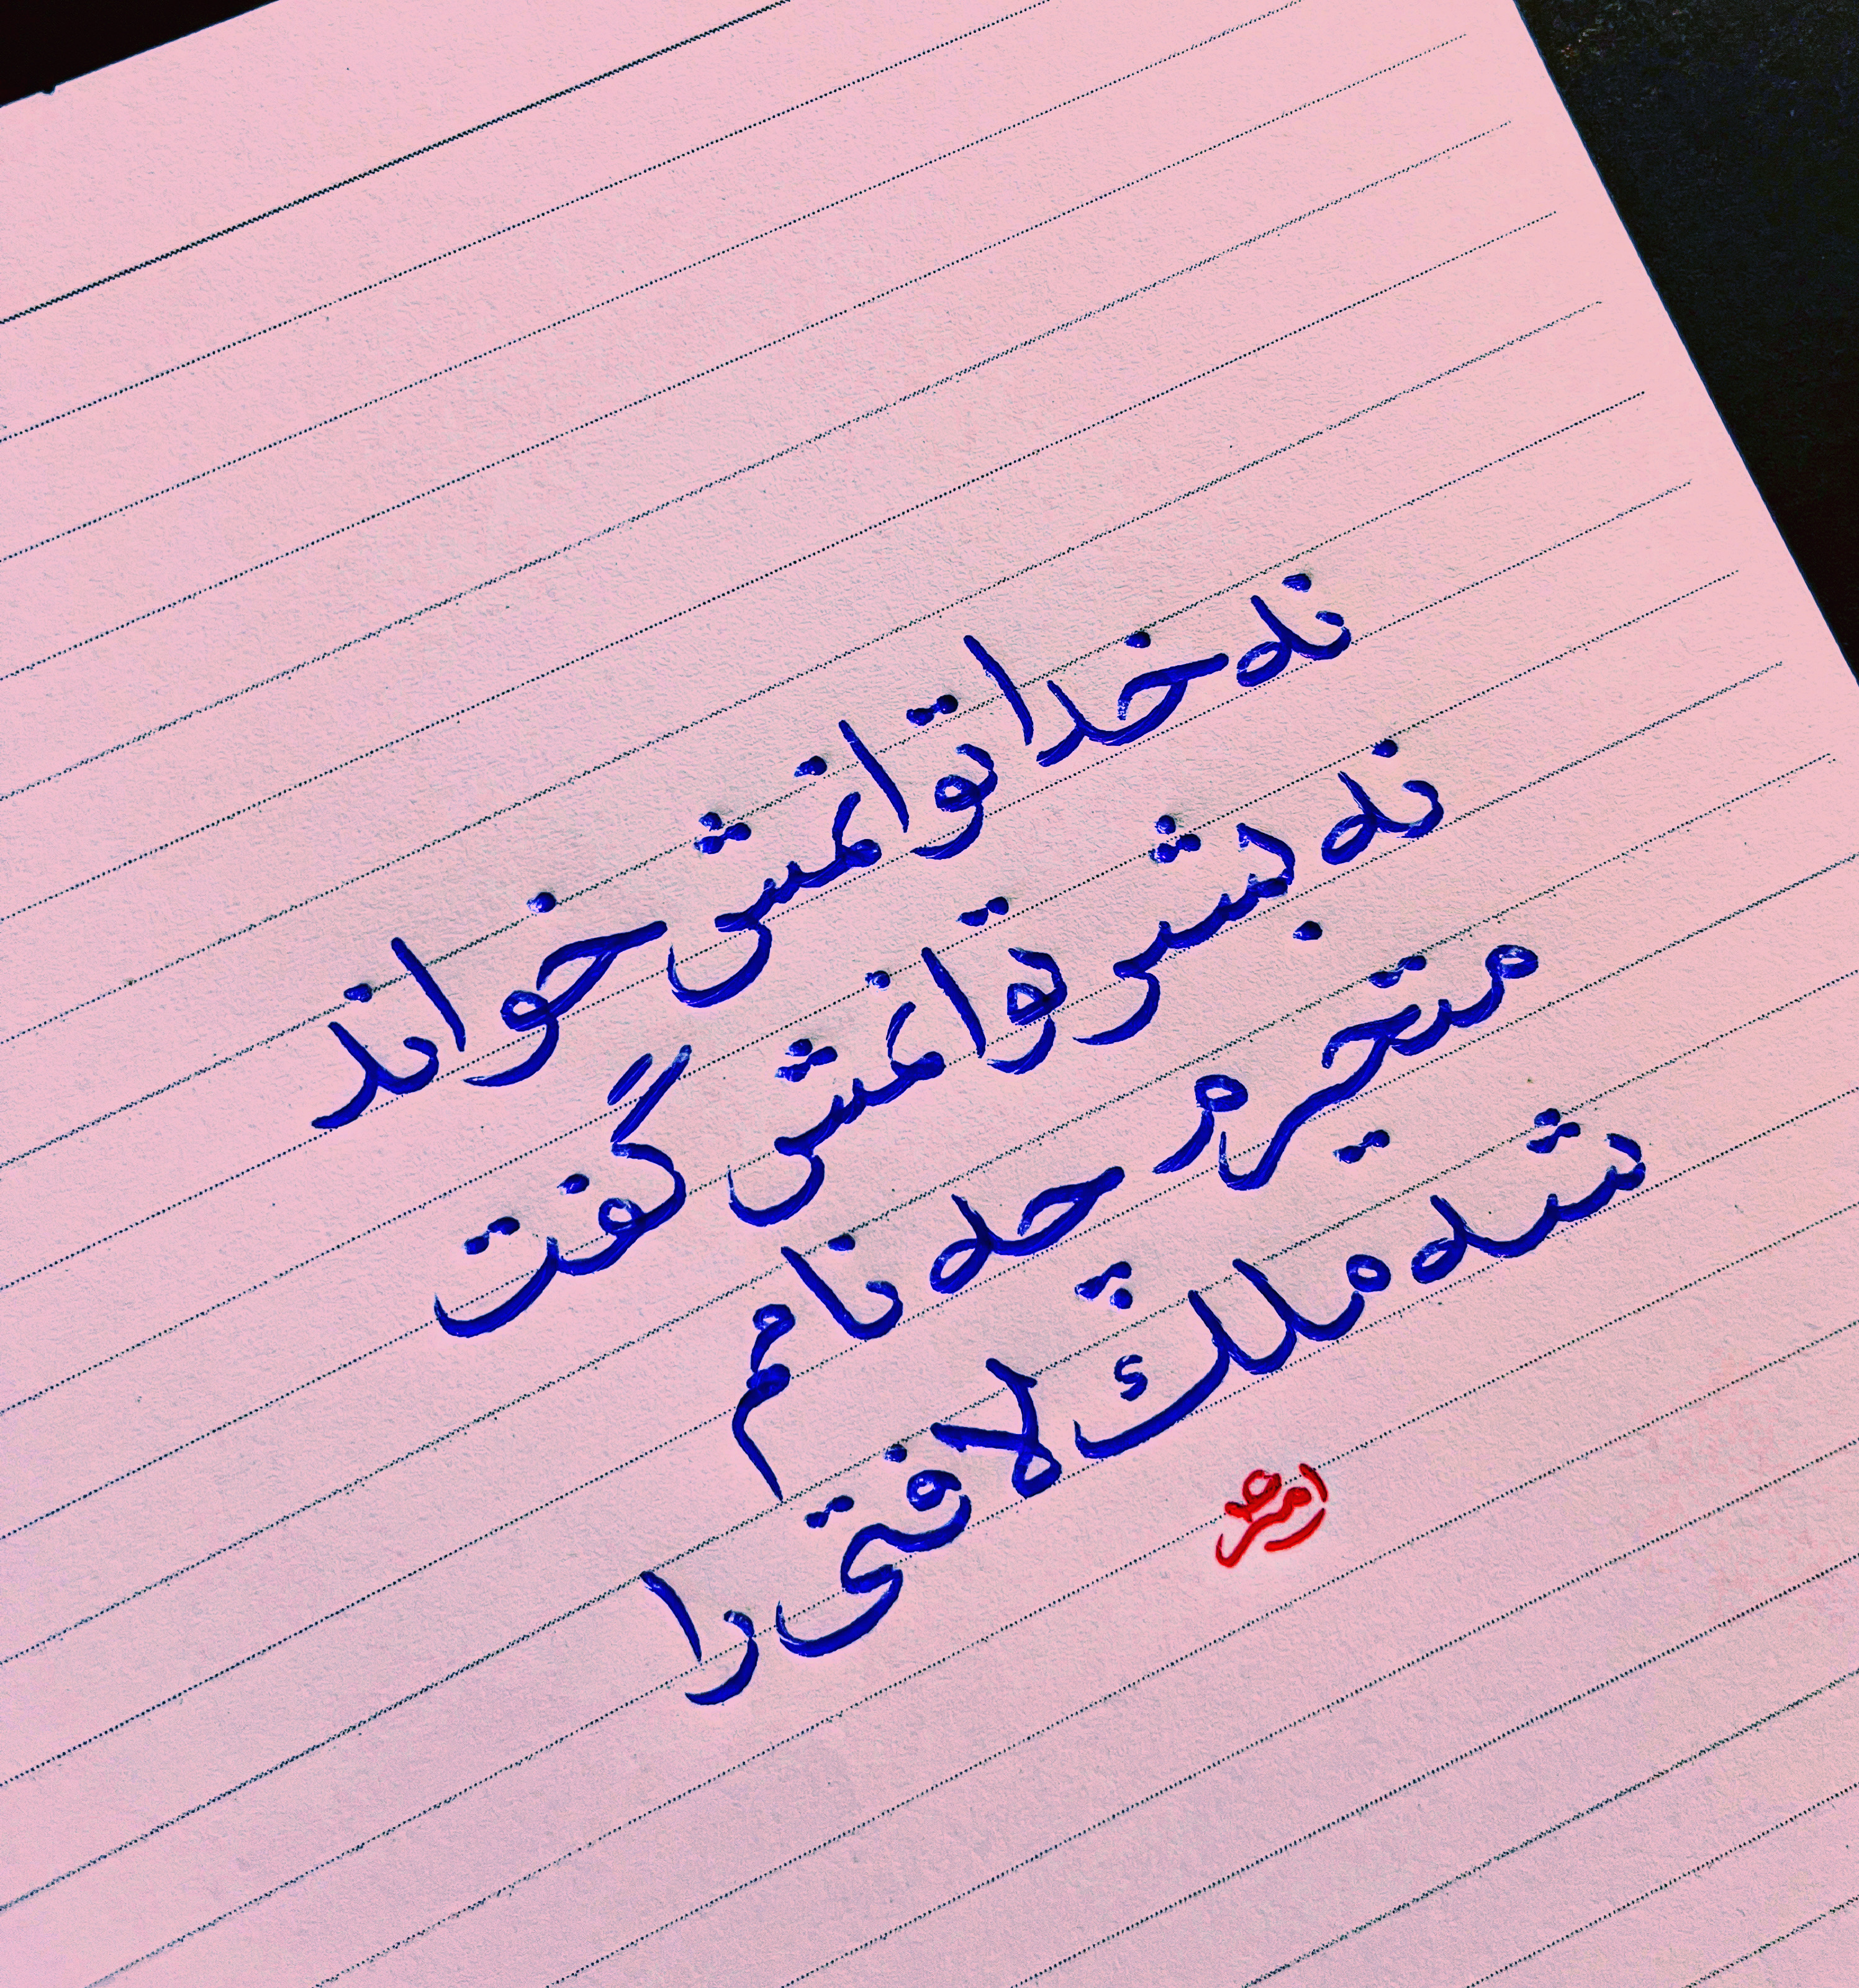 نه خدا توانمش خواند
نه بشر توانمش گفت
متحیرم چه نامم
شه ملک لافتی را